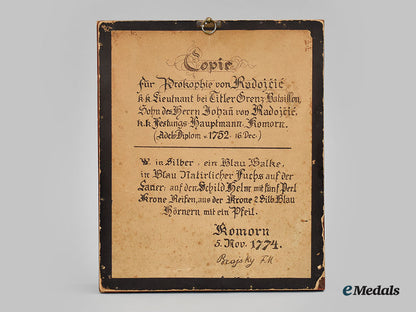 Copie
für Prokophie von Radojčić
k.k. Lieutnant bei Titler Grenz Bataillon,
Sohn des Herrn Johañ von Radojčić,
k.k. Festungs Hauptmann, Komorn.
(Adels Diplom v. 1752. 16. Dec.)
W. in Silber, ein Blau Balke,
in Blau Natirlicher Fuchs auf der
Lauer, auf den Schild Helm mit fünf Perl
Krone Reifen, aus der Krone 2 Silb Blau
Hörnern mit ein Pfeil.
Komorn
5. Nov. 1774.
eMedals